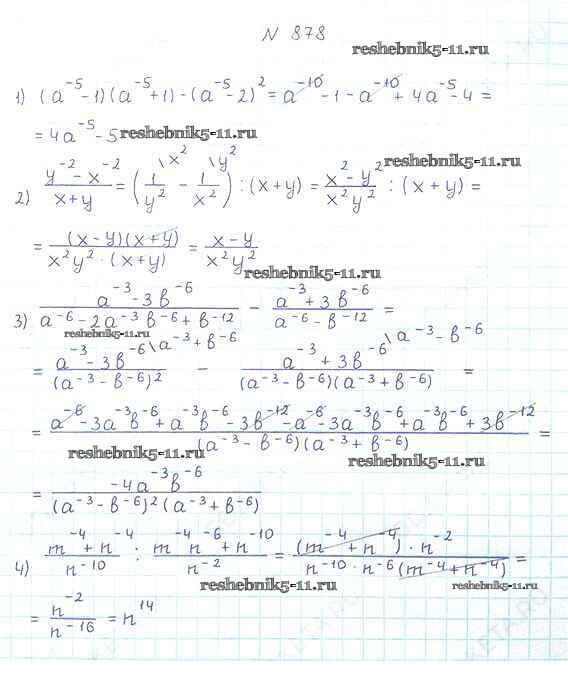 N 878
reshebnik5-11.ru
1) (a⁻⁵-1)(a⁻⁵+1)-(a⁻⁵-2)² = a⁻¹⁰-1-a⁻¹⁰+4a⁻⁵-4 =
= 4a⁻⁵-5 reshebnik5-11.ru reshebnik5-11.ru
2) (y⁻²-x⁻²)/(x+y) = (1/y² \x² - 1/x² \y²) : (x+y) = (x²-y²)/(x²y²) : (x+y) =
= ((x-y)(x+y))/(x²y²·(x+y)) = (x-y)/(x²y²)
reshebnik5-11.ru
3) (a⁻³-3b⁻⁶)/(a⁻⁶-2a⁻³b⁻⁶+b⁻¹²) - (a⁻³+3b⁻⁶)/(a⁻⁶-b⁻¹²) =
reshebnik5-11.ru
= (a⁻³-3b⁻⁶ \a⁻³+b⁻⁶)/((a⁻³-b⁻⁶)²) - (a⁻³+3b⁻⁶ \a⁻³-b⁻⁶)/((a⁻³-b⁻⁶)(a⁻³+b⁻⁶)) =
= (a⁻⁶-3a⁻³b⁻⁶+a⁻³b⁻⁶-3b⁻¹²-a⁻⁶-3a⁻³b⁻⁶+a⁻³b⁻⁶+3b⁻¹²)/((a⁻³-b⁻⁶)(a⁻³+b⁻⁶)) =
reshebnik5-11.ru reshebnik5-11.ru
= (-4a⁻³b⁻⁶)/((a⁻³-b⁻⁶)²(a⁻³+b⁻⁶))
4) (m⁻⁴+n⁻⁴)/(n⁻¹⁰) : (m⁻⁴n⁻⁶+n⁻¹⁰)/(n⁻²) = ((m⁻⁴+n⁻⁴)·n⁻²)/(n⁻¹⁰·n⁻⁶(m⁻⁴+n⁻⁴)) =
reshebnik5-11.ru reshebnik5-11.ru
= n⁻²/n⁻¹⁶ = n¹⁴